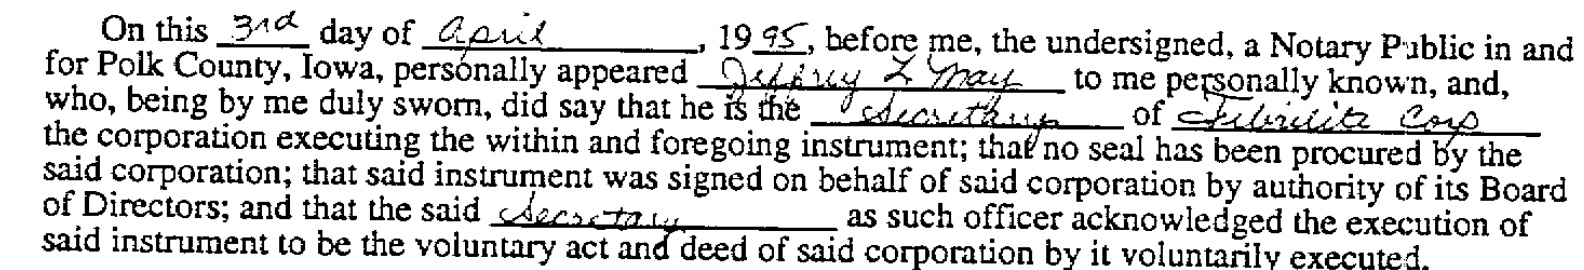 On this 3rd day of April, 1995, before me, the undersigned, a Notary Public in and
for Polk County, Iowa, personally appeared Jeffrey L May to me personally known, and,
who, being by me duly sworn, did say that he is the of Corp
the corporation executing the within and foregoing instrument; that no seal has been procured by the
said corporation; that said instrument was signed on behalf of said corporation by authority of its Board
of Directors; and that the said Secretary as such officer acknowledged the execution of
said instrument to be the voluntary act and deed of said corporation by it voluntarily executed.